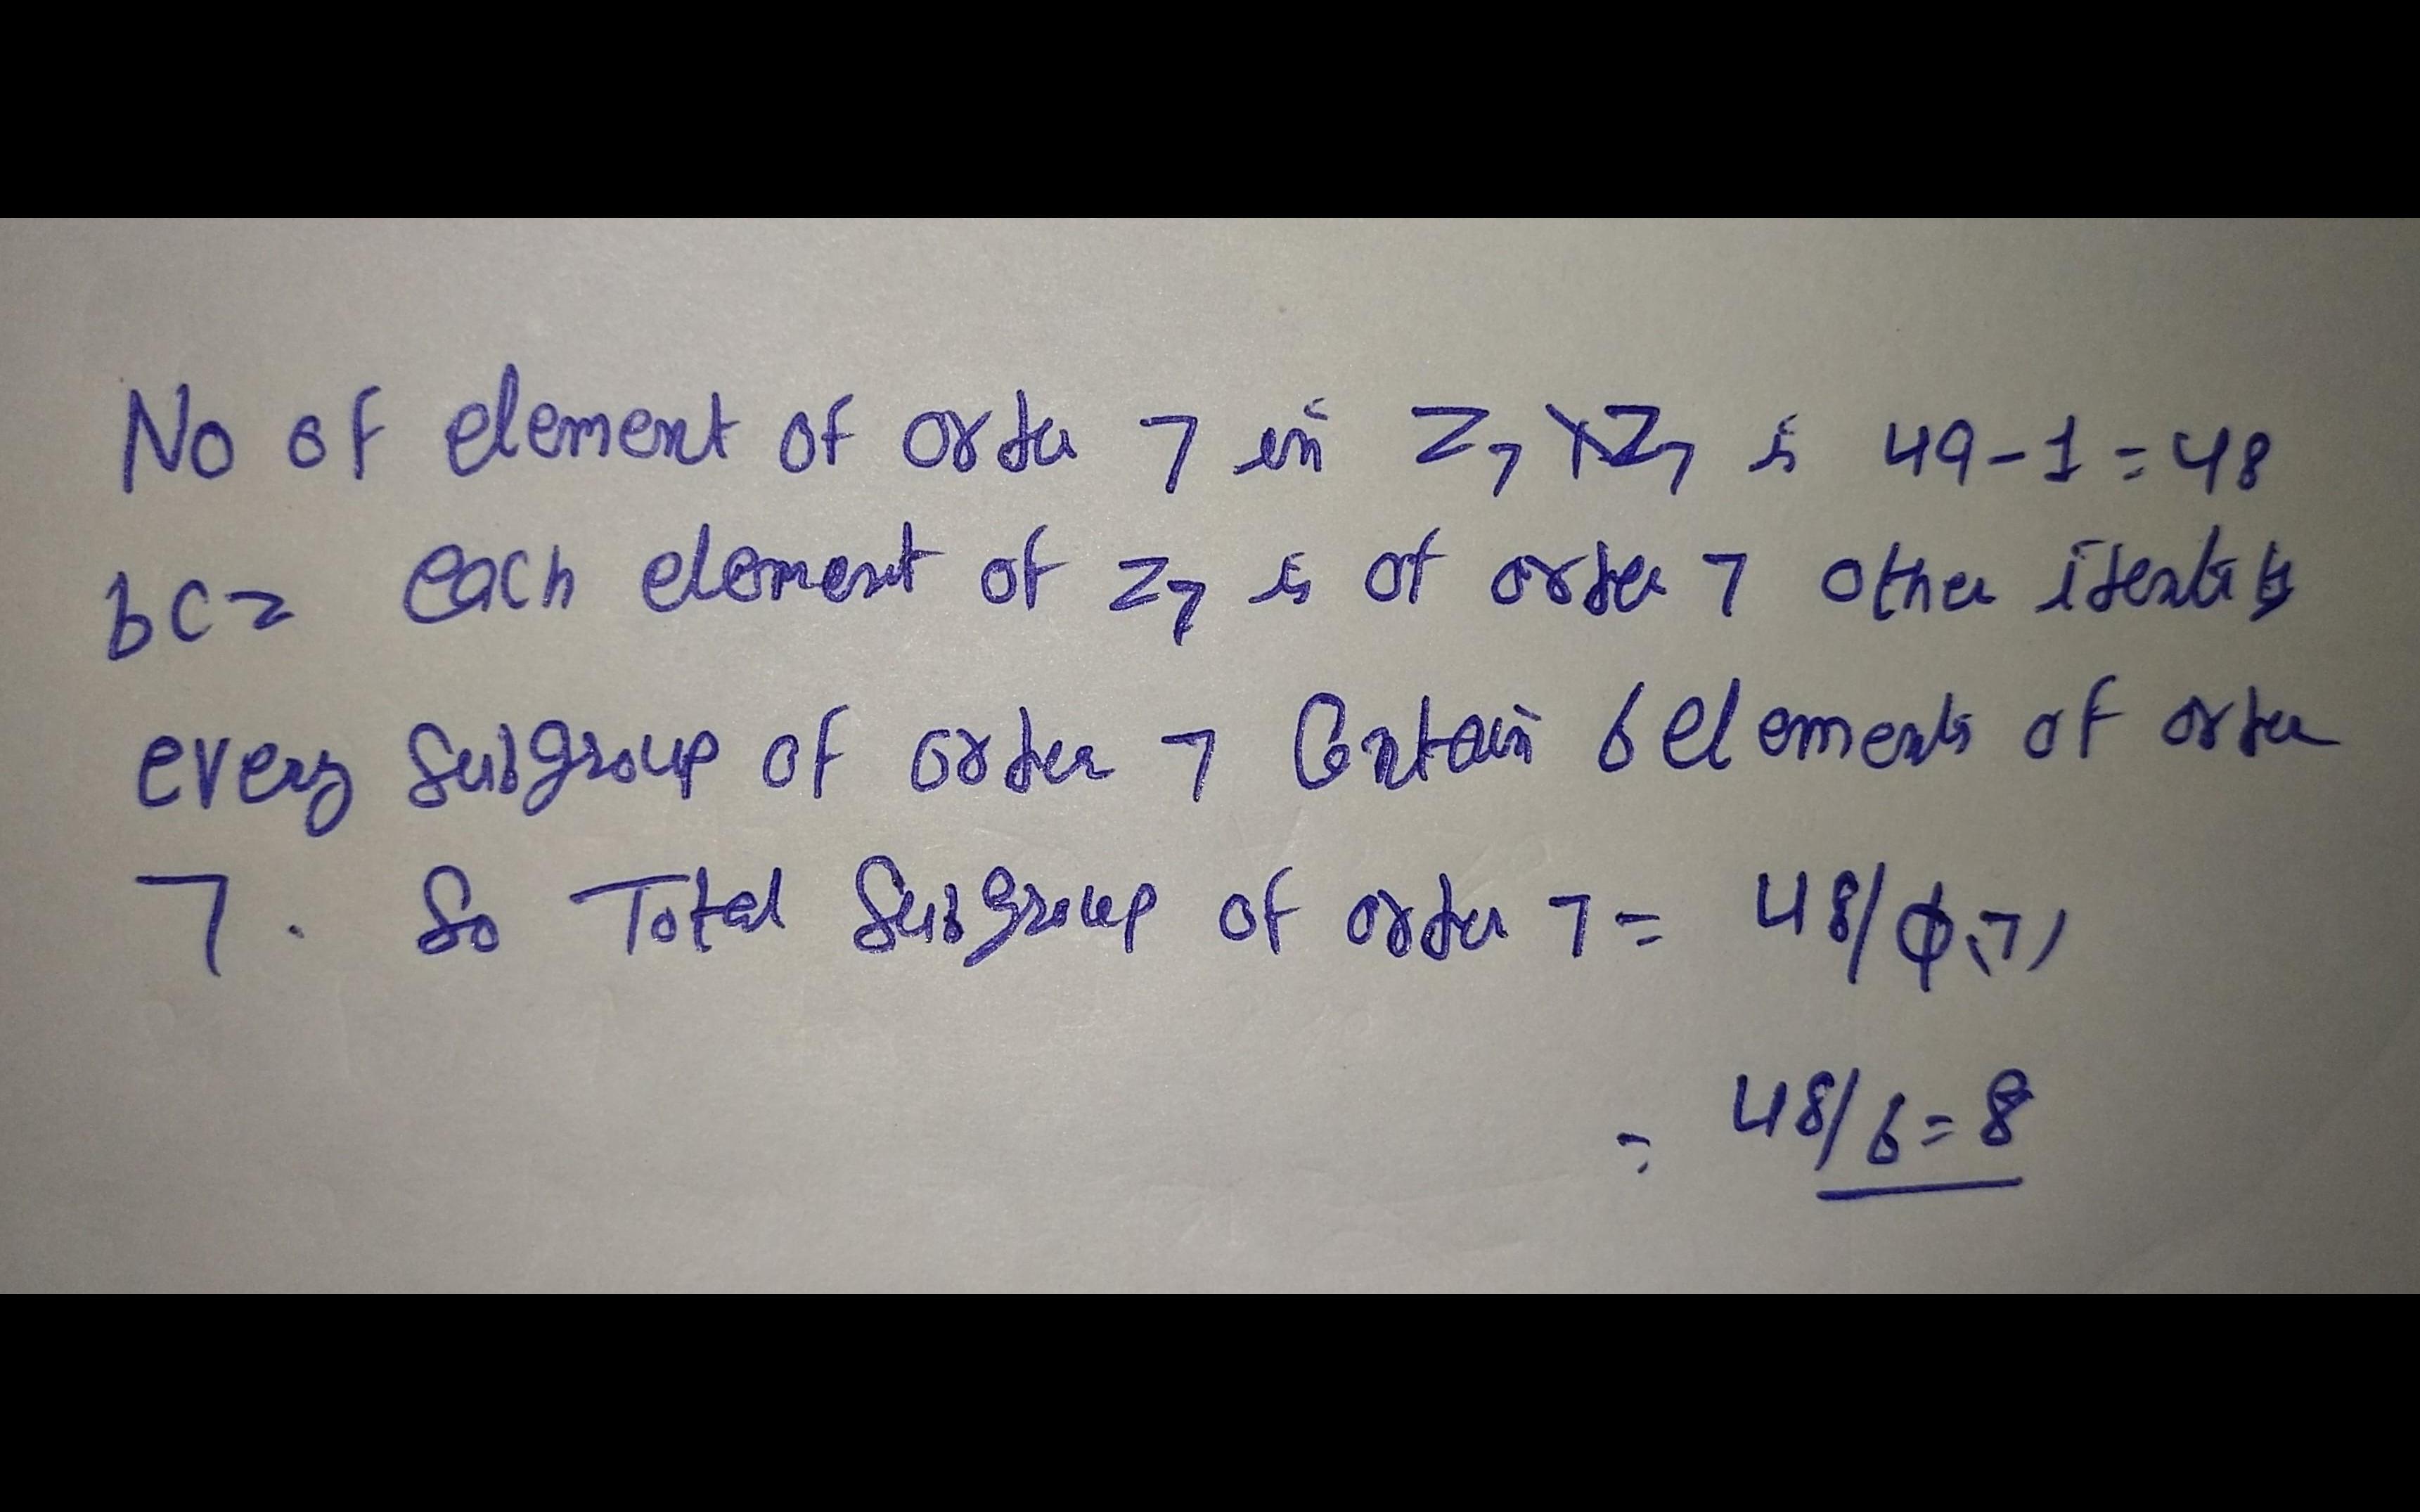 No of element of order 7 in Z₇ × Z₇ is 49-1=48
bcz each element of Z₇ is of order 7 other identity
every subgroup of order 7 Contain 6 elements of order
7. So Total Subgroup of order 7 = 48/ϕ(7)
= 48/6=8